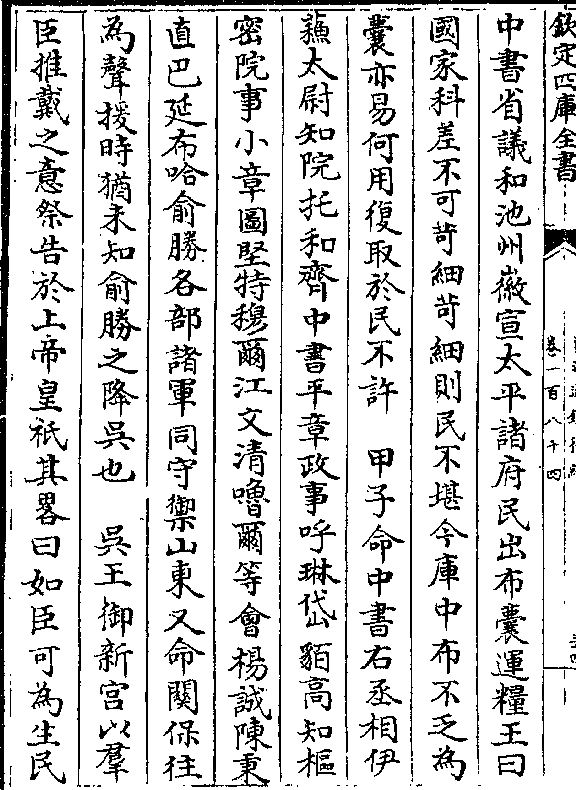 欽定四庫全書
卷一百八十四
中書省議和池州徽宣太平諸府民出布囊運糧王曰
國家科差不可苛細苛細則民不堪今庫中布不乏為
囊亦易何用復取於民不許　甲子命中書右丞相伊
蘓太尉知院托和齊中書平章政事呼琳岱貊高知樞
密院事小章圖堅特穆爾江文清嚕爾等會楊誠陳秉
直巴延布哈俞勝各部諸軍同守禦山東又命關保往
為聲援時猶未知俞勝之降吳也　吳王御新宮以羣
臣推戴之意祭告於上帝皇祇其畧曰如臣可為生民